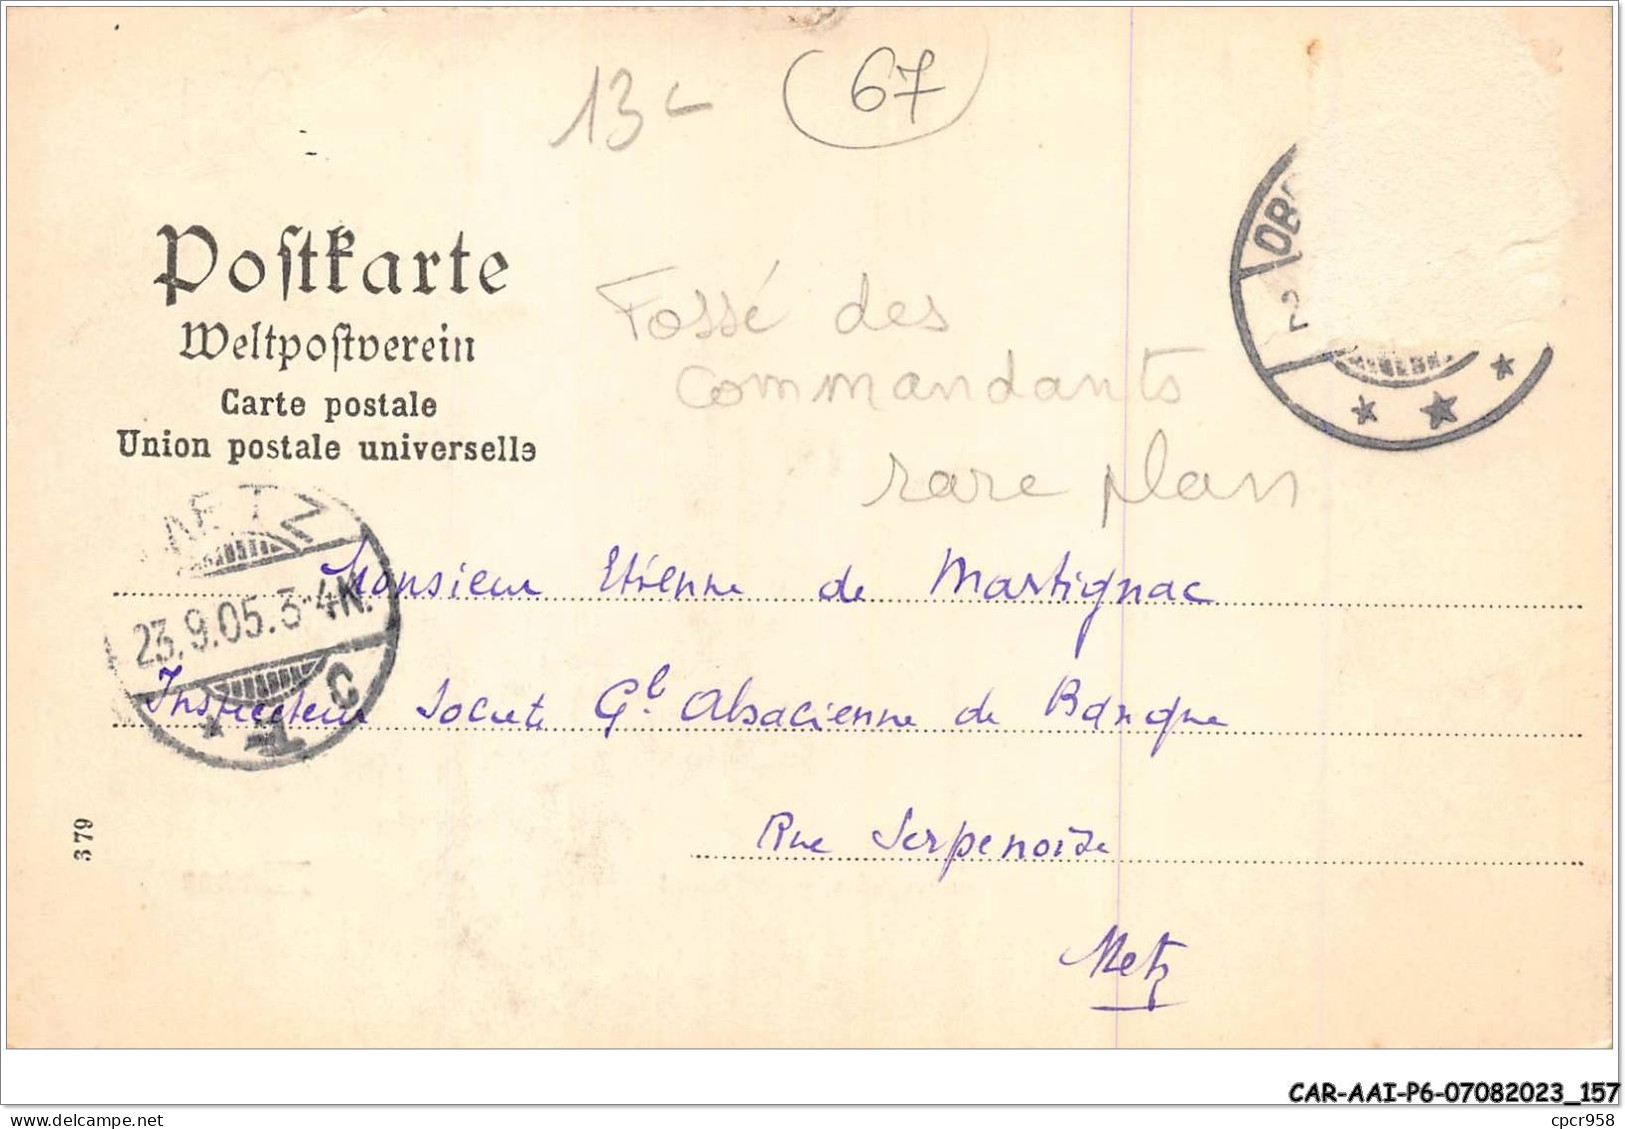 13-
67
Postkarte
Weltpostverein
Carte postale
Union postale universelle
Fossé des
commandants
rare plan
METZ
23.9.05.3-4N.
C
Monsieur Etienne de Martignac
Inspecteur Societe Gl Alsacienne de Banque
Rue Serpenoise
Metz
379
CAR-AAI-P6-07082023_157
delcampe.net
cpcr958